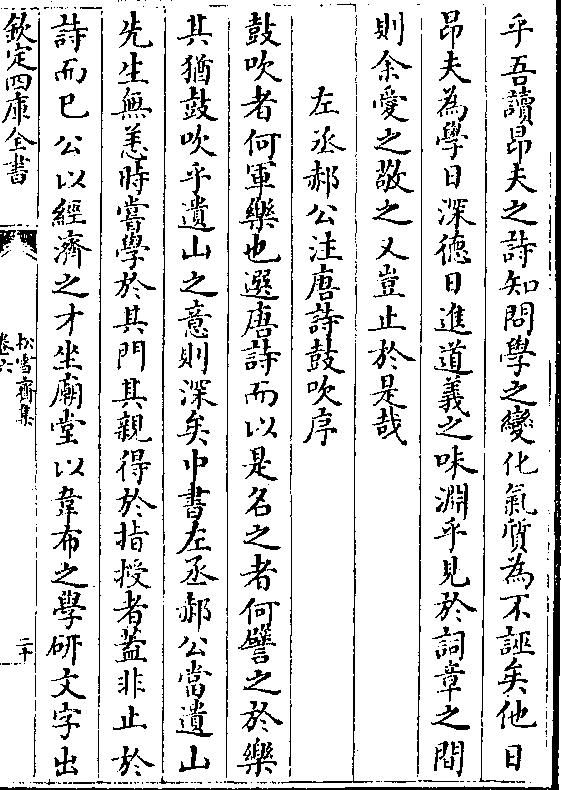 乎吾讀昂夫之詩知問學之變化氣質為不誣矣他日
昂夫為學日深德日進道義之味淵乎見於詞章之間
則余愛之敬之又豈止於是哉
左丞郝公注唐詩鼓吹序
鼓吹者何軍樂也選唐詩而以是名之者何譬之於樂
其猶鼓吹乎遺山之意則深矣中書左丞郝公當遺山
先生無恙時嘗學於其門其親得於指授者蓋非止於
詩而已公以經濟之才坐廟堂以韋布之學研文字出
欽定四庫全書
松雪齋集
卷六
二十